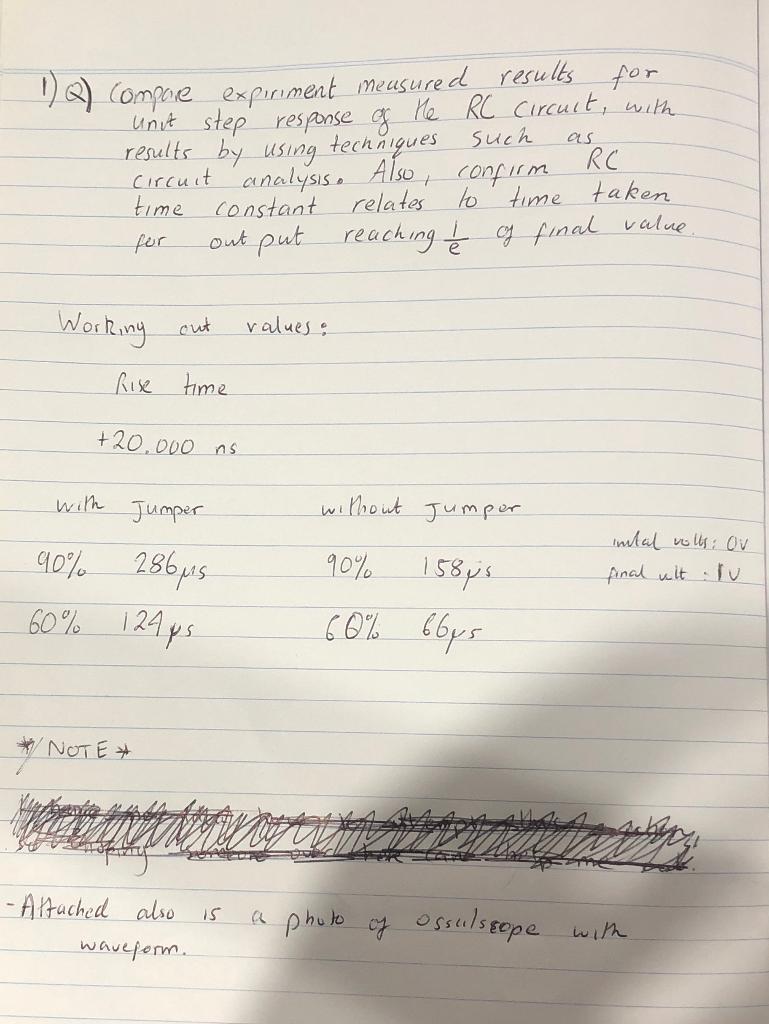 1) Q) Compare expiriment measured results for
unit step response of the RC circuit, with
results by using techniques such as
circuit analysis. Also, confirm RC
time constant relates to time taken
for output reaching 1/e of final value.
Working out values:
Rise time
+20.000 ns
with Jumper without Jumper
inital volts: 0V
90% 286μs 90% 158μs
final volt: 1V
60% 124μs 60% 66μs
*/ NOTE *
- Attached also is a photo of ossulscope with
waveform.